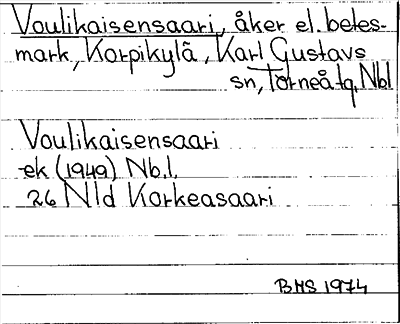 Voulikaisensaari, åker el. betes-
mark, Korpikylä, Karl Gustavs
sn, Torneå tg, Nbl
Voulikaisensaari
ek (1949) Nb.l.
26 Nld Korkeasaari
BHS 1974